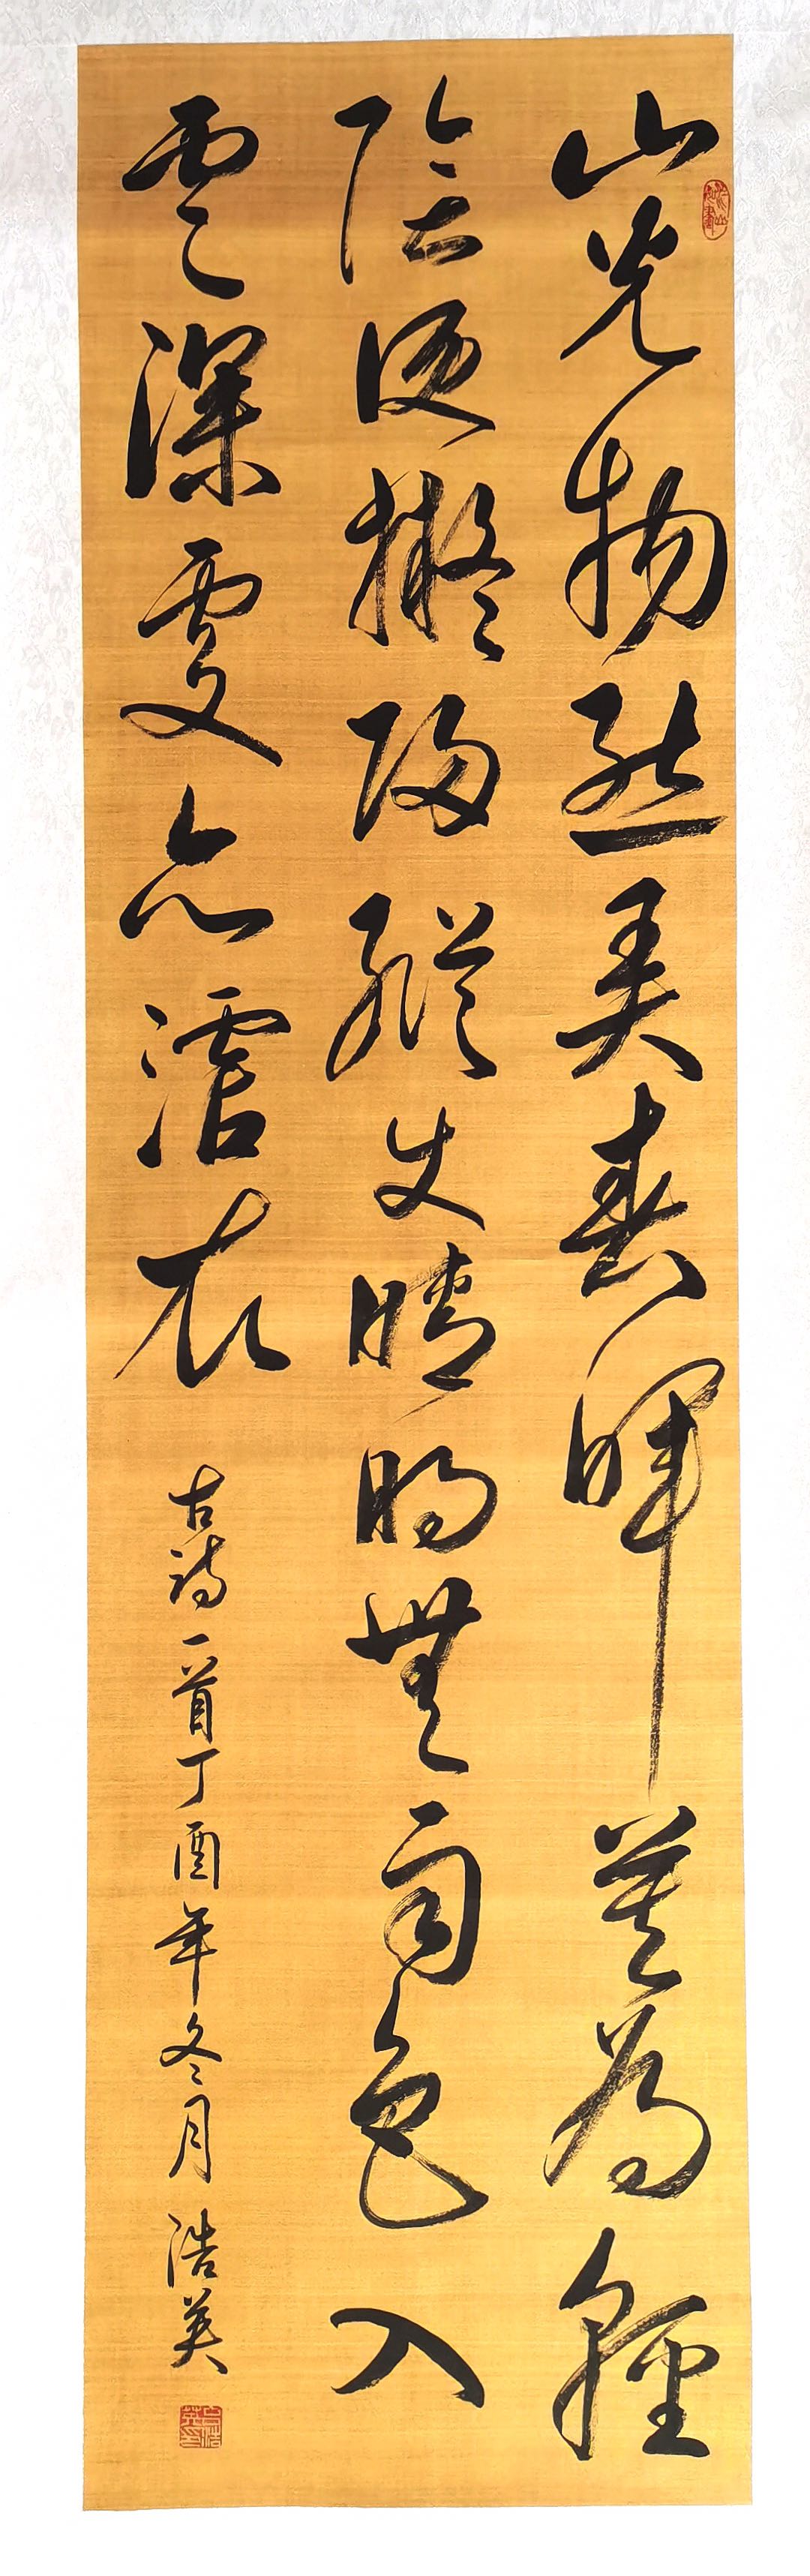 山光物態弄春暉莫為輕
陰便擬歸縱使晴明無雨色入
雲深處亦霑衣 古詩一首丁酉年冬月浩英